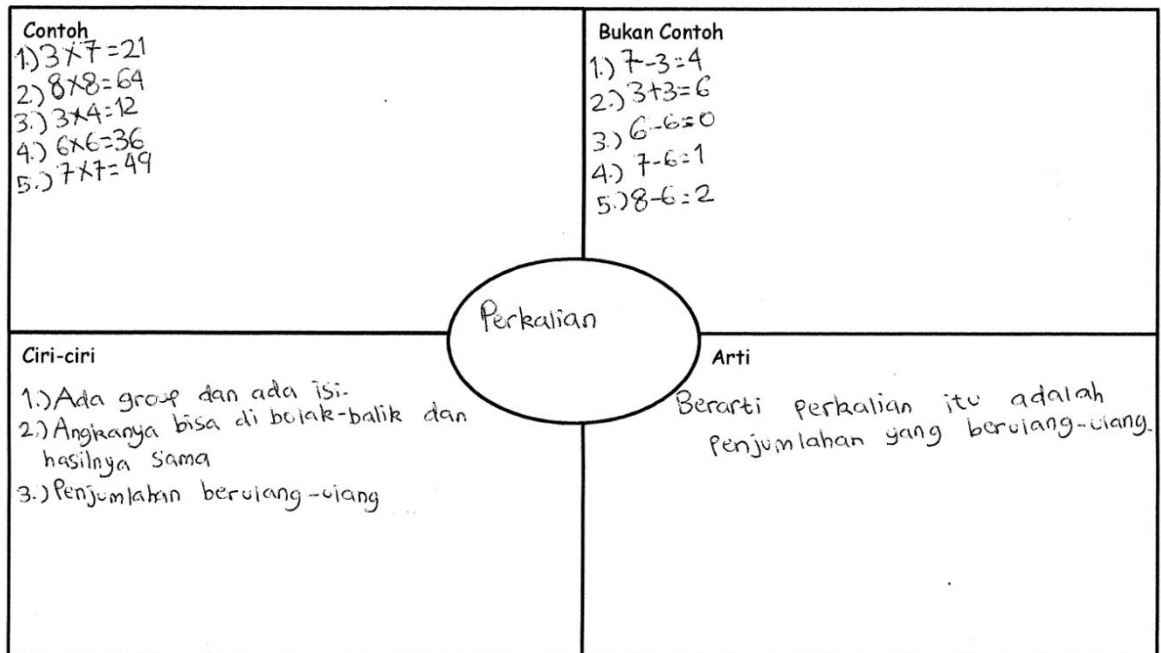 Contoh
1.) 3×7=21
2.) 8×8=64
3.) 3×4=12
4.) 6×6=36
5.) 7×7=49
Bukan Contoh
1.) 7-3=4
2.) 3+3=6
3.) 6-6=0
4.) 7-6=1
5.) 8-6=2
Perkalian
Ciri-ciri
1.) Ada group dan ada isi.
2.) Angkanya bisa di bolak-balik dan
hasilnya sama
3.) Penjumlahan berulang-ulang
Arti
Berarti perkalian itu adalah
Penjumlahan yang berulang-ulang.